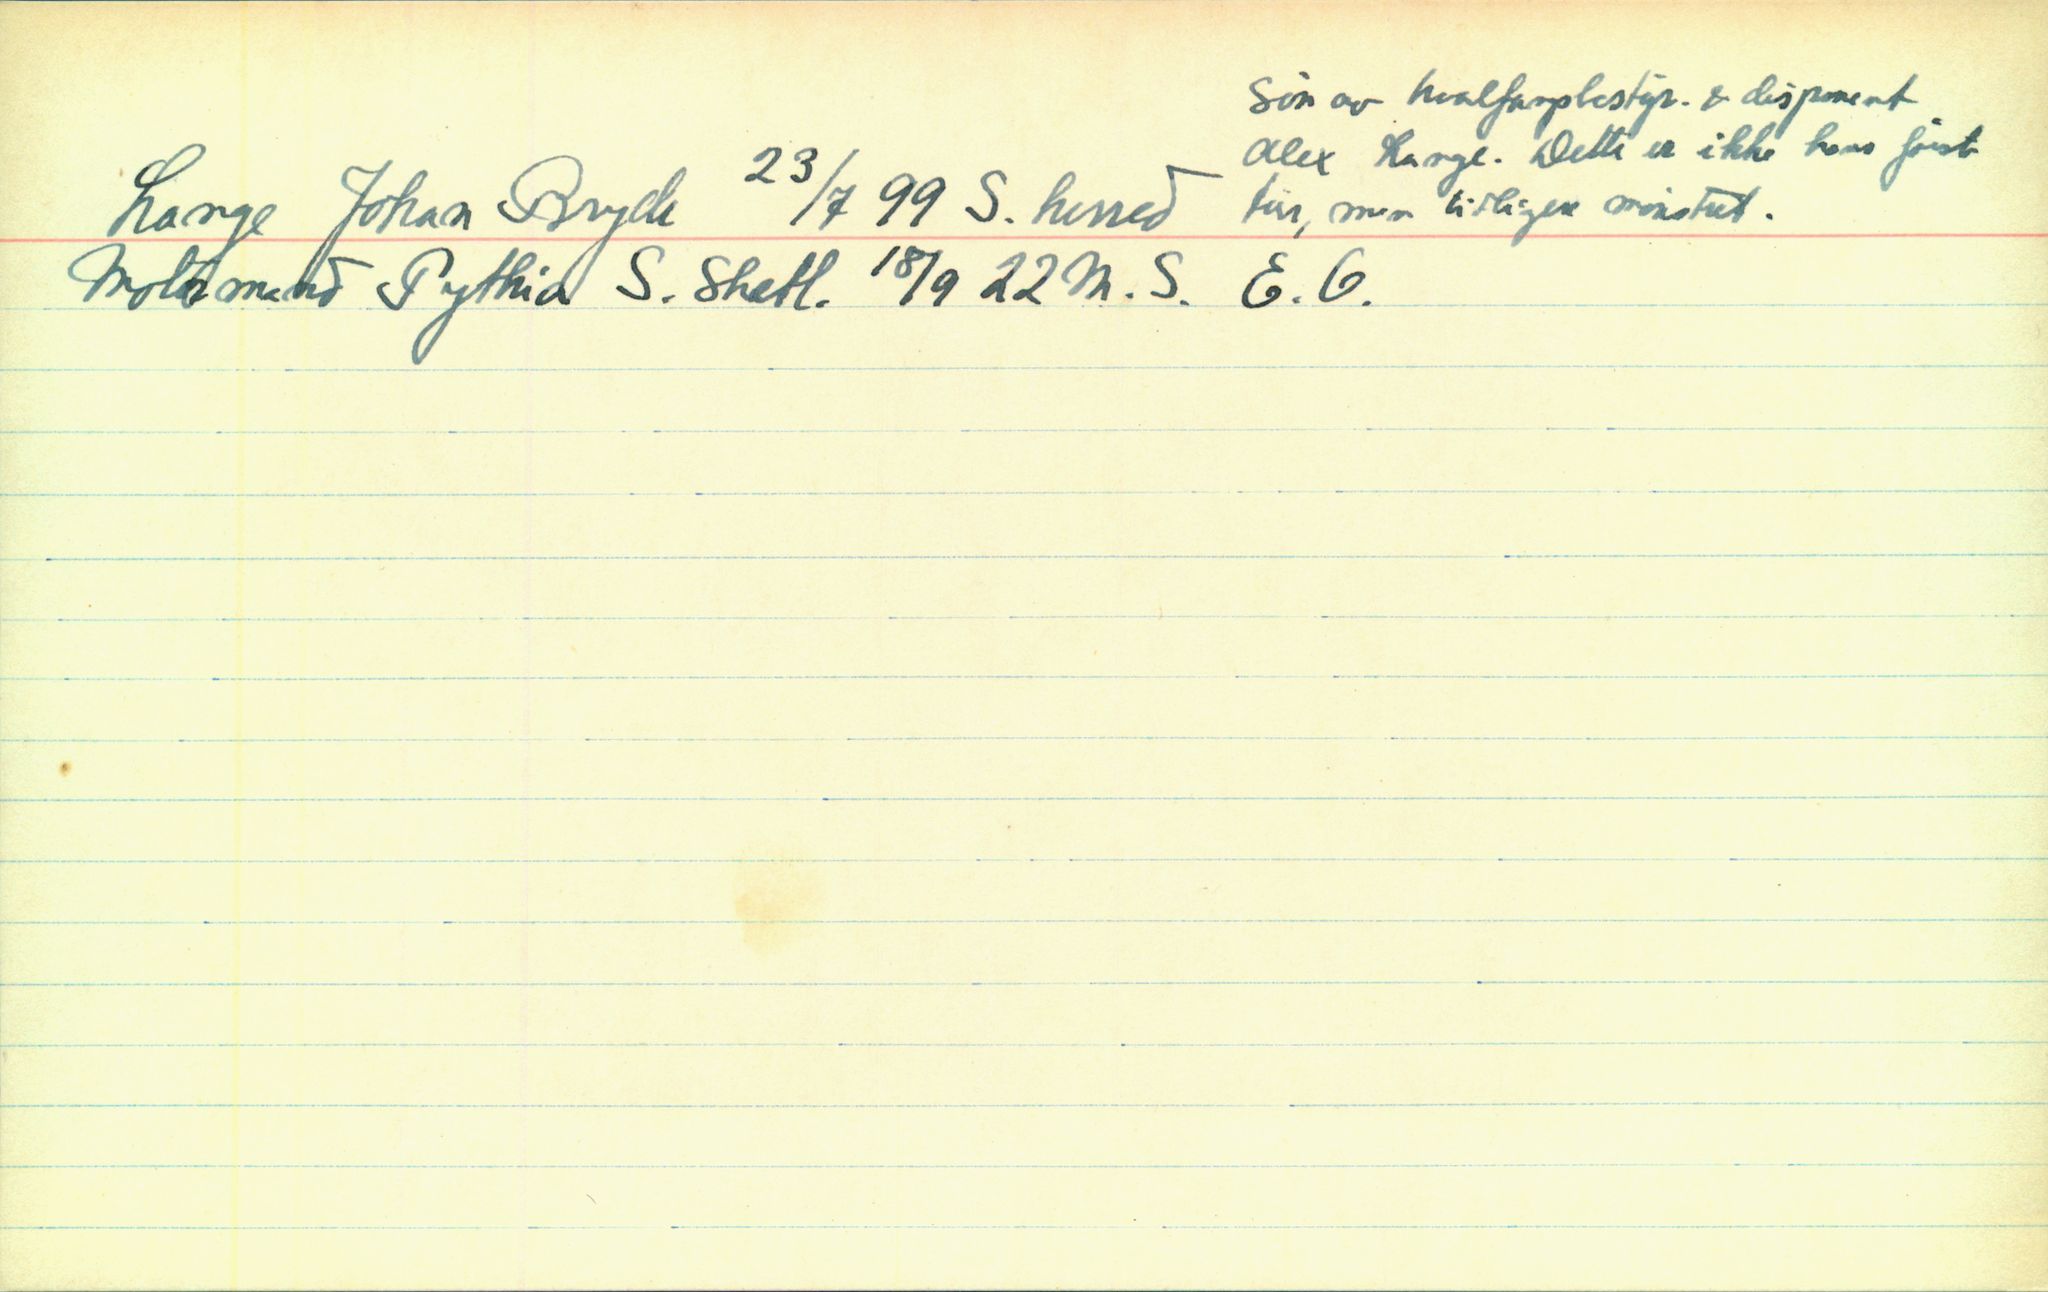 Søn av hvalfangstbestyr. & disponent
Alex Lange. Dette er ikke hans første
tur, men tidligere mønstret.
Lange Johan Bryde 23/7 99 S. herred
Motormand Pythia S. Shetl. 18/9 22 M. S. E. G.